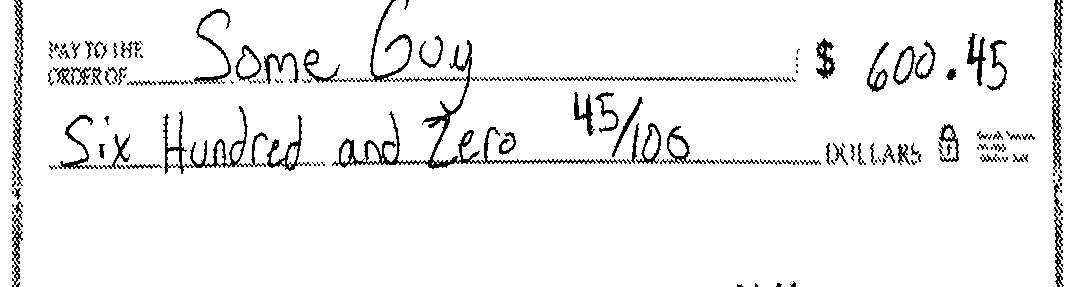 PAY TO THE
ORDER OF Some Guy $ 600.45
Six Hundred and Zero 45/100 DOLLARS